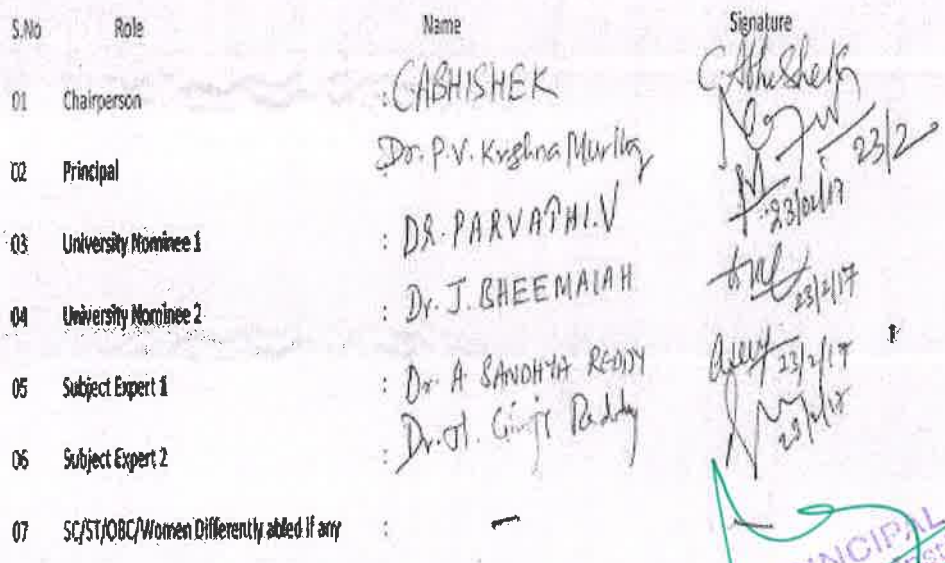 S.No Role Name Signature
01 Chairperson : C ABHISHEK C. Abhishek
02 Principal Dr. P.V. Krishna Murthy 23/2
03 University Nominee 1 : DR. PARVATHI.V 23/02/17
04 University Nominee 2 : Dr. J. BHEEMAIAH 23/2/17
05 Subject Expert 1 : Dr. A SANDHYA REDDY 23/2/17
06 Subject Expert 2 : Dr. Reddy 23/2/17
07 SC/ST/OBC/Women Differently abled if any : — —
PRINCIPAL